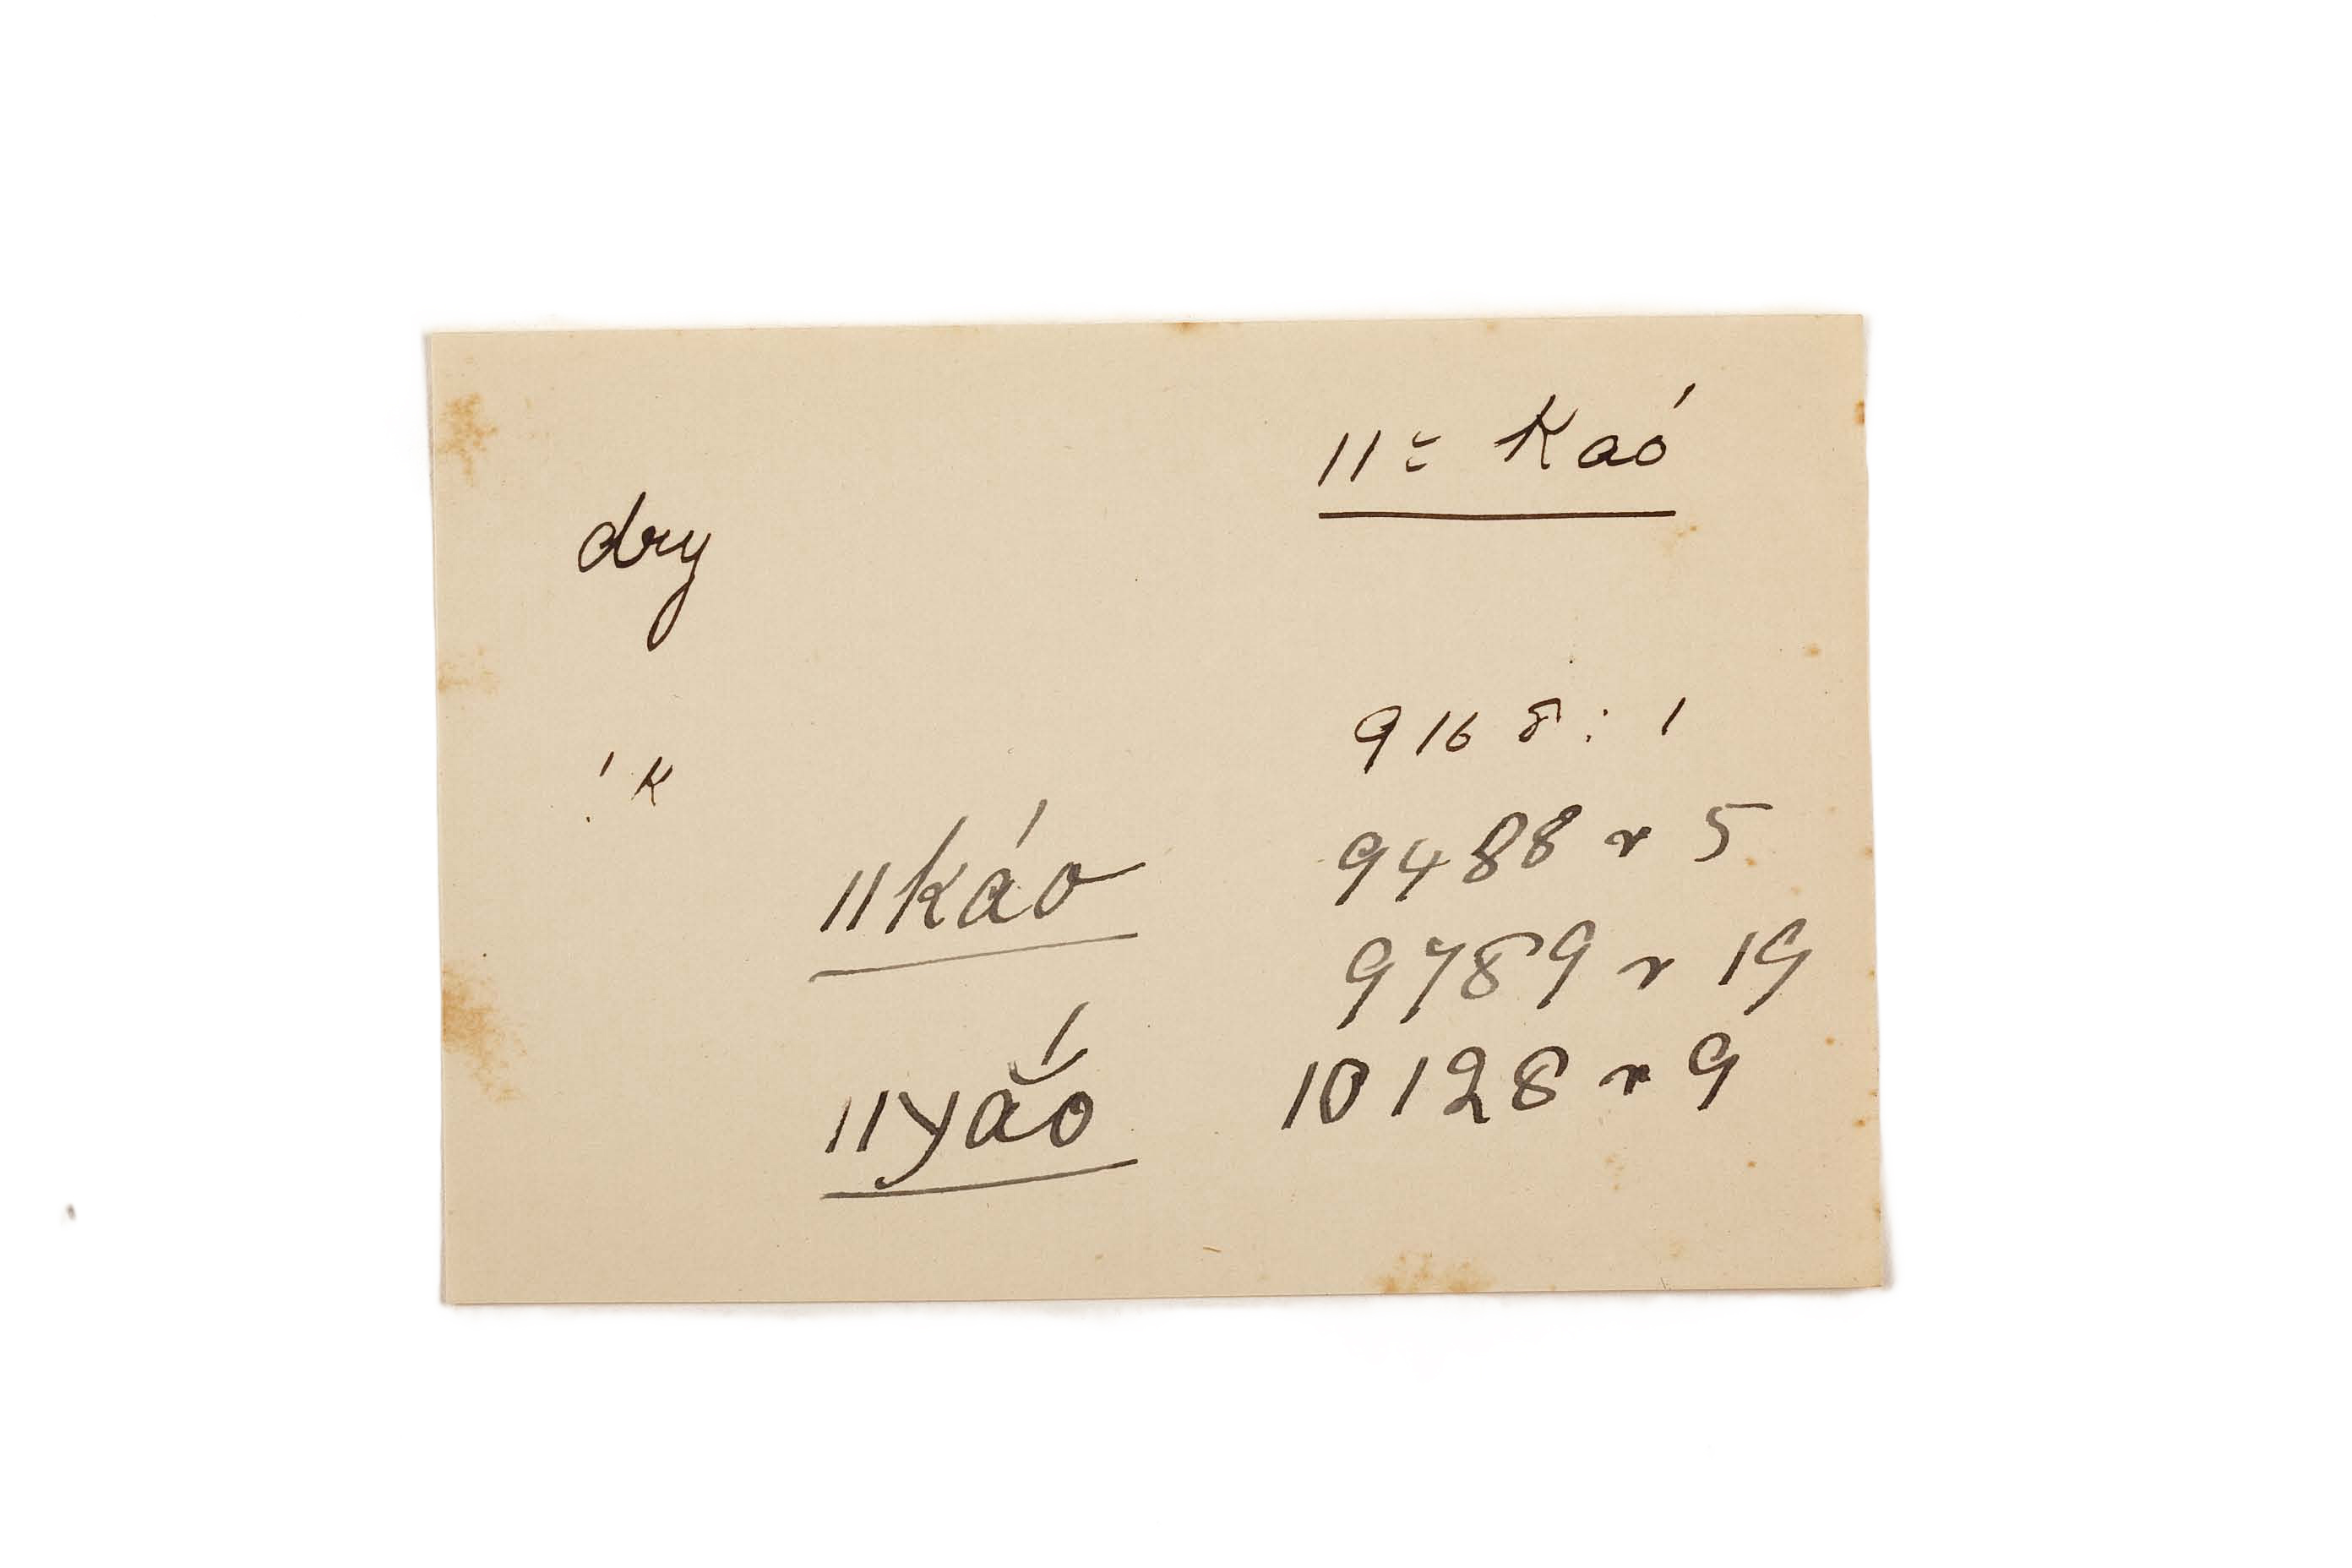 11= Kaó
dry
9168 : 1
! K
11káo 9488 r 5
9789 r 19
11yắo 10128 r 9